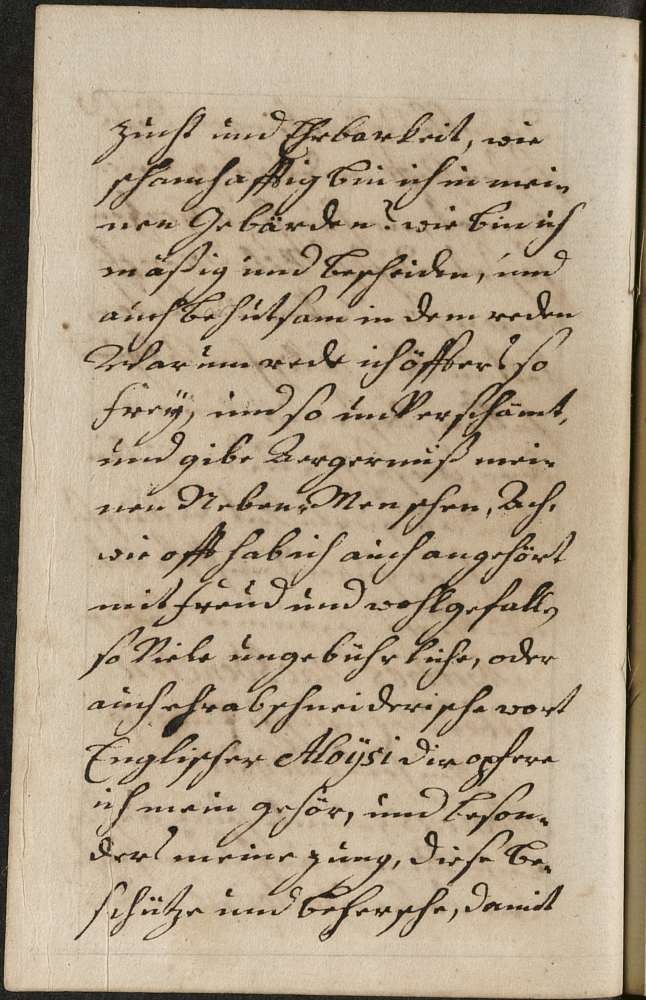 zucht und Ehrbarkeit, wie
schamhafftig bin ich in mei-
nen Gebärden? wie bin ich
mäßig und bescheiden, und
auch behutsam in dem reden
Warum rede ich öffters so
frey, und so unverschämt,
und gibe Aergernuß mei-
nen Neben-Menschen, Ach,
wie offt hab ich auch angehört
mit freud und wohlgefallen
so Viele ungebührliche, oder
auch ehrabschneiderische wort
Englischer Aloÿsi dir opfere
ich mein gehör, und beson-
ders meine zung, diese be-
schütze und behersche, damit